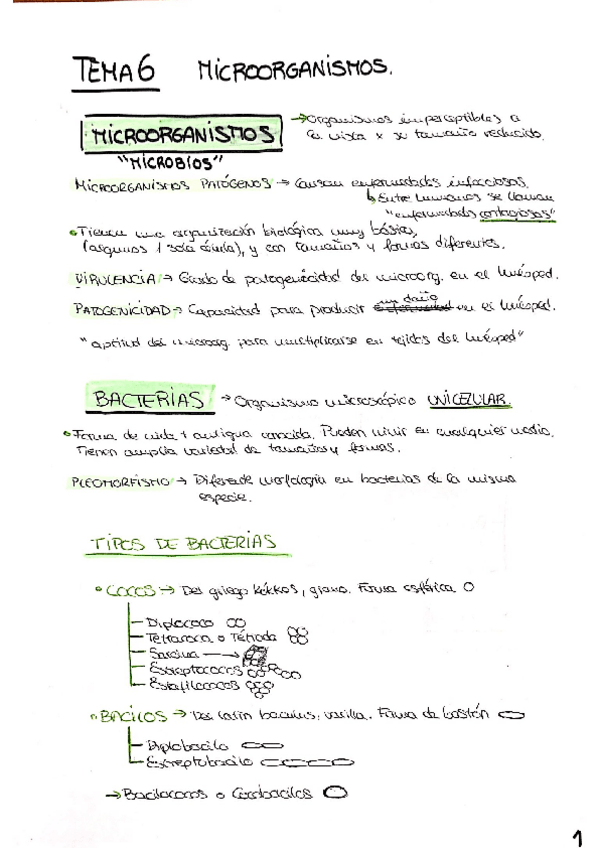 TEMA 6 MICROORGANISMOS.
MICROORGANISMOS → Organismos imperceptibles a
la vista x su tamaño reducido.
"MICROBIOS"
MICROORGANISMOS PATÓGENOS → Causan enfermedades infecciosas.
↳ Entre humanos se llaman
"enfermedades contagiosas"
• Tienen una organización biológica muy básica,
(algunos 1 sola célula), y con tamaños y formas diferentes.
VIRULENCIA → Grado de patogenicidad del microorg. en el huésped.
PATOGENICIDAD → Capacidad para producir un daño en el huésped.
"aptitud del microorg. para multiplicarse en tejidos del huésped"
BACTERIAS → Organismo microscópico UNICELULAR.
• Forma de vida + antigua conocida. Pueden vivir en cualquier medio.
Tienen amplia variedad de tamaños y formas.
PLEOMORFISMO → Diferente morfología en bacterias de la misma
especie.
TIPOS DE BACTERIAS
• COCOS → Del griego kókkos, grano. Forma esférica
Diplococo
Tetracoca o Tétrada
Sarcina →
Estreptococos
Estafilococos
• BACILOS → Del latín baculus, varilla. Forma de bastón
Diplobacilo
Estreptobacilo
→ Bacilococos o Cocobacilos
1